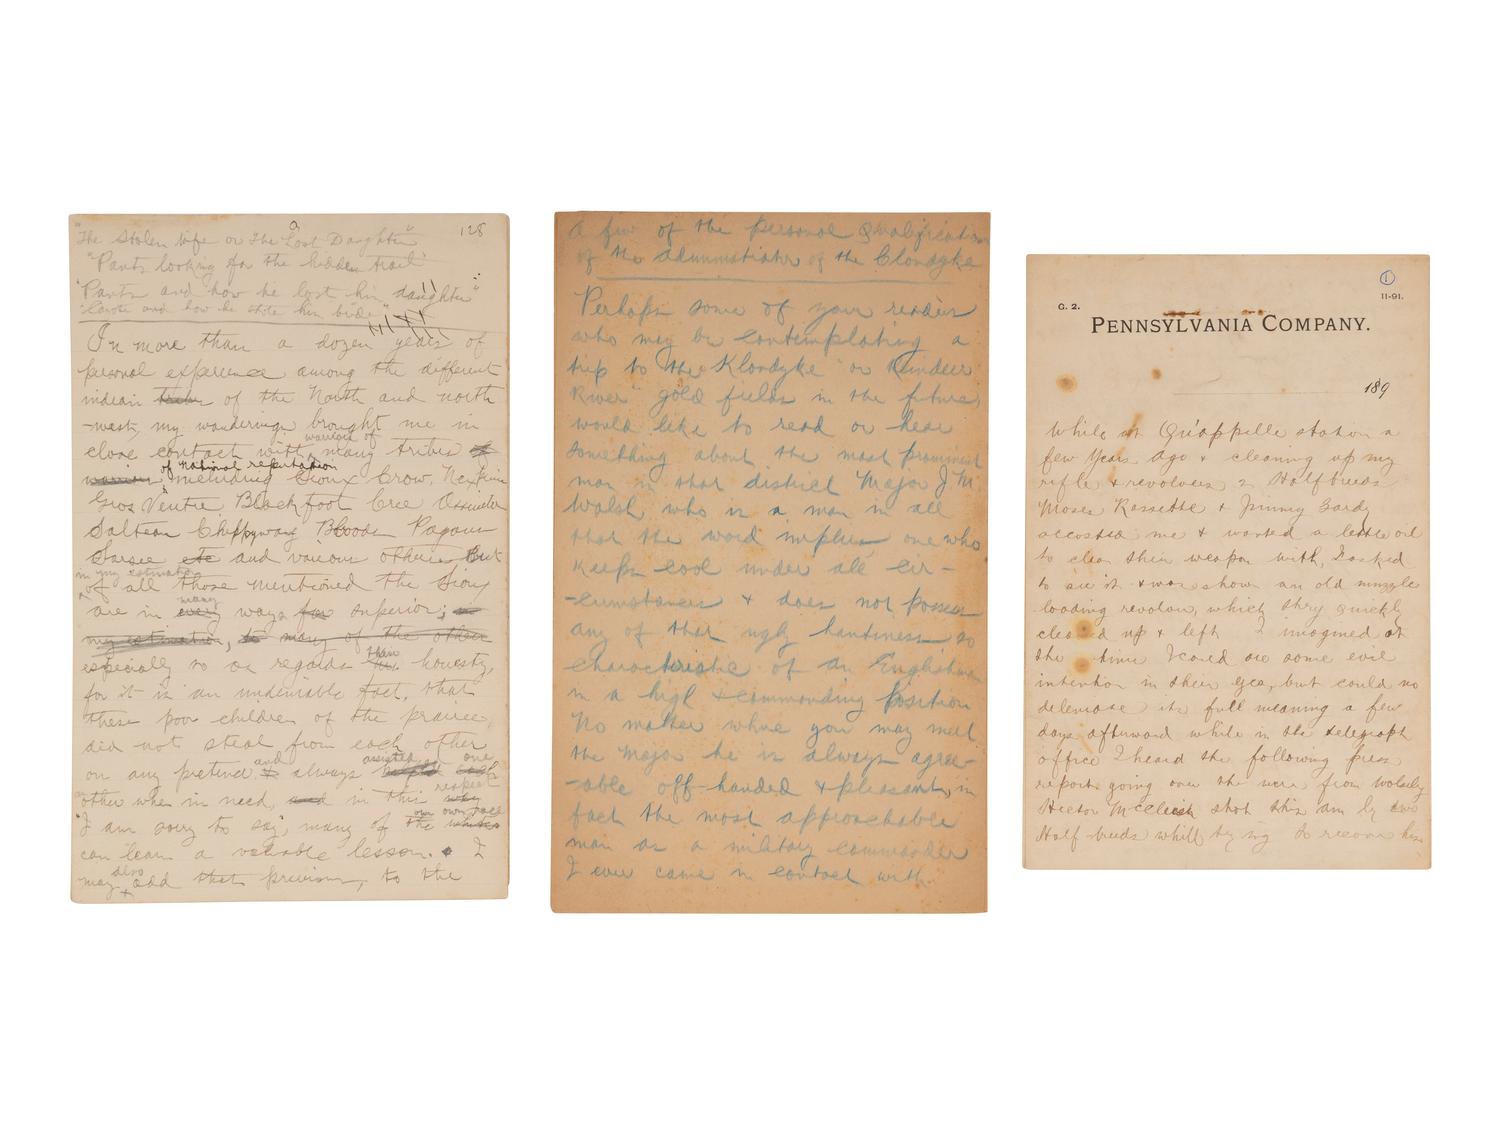 128
"The Stolen Wife or The Lost Daughter"
"Pants looking for the hidden trail"
"Pants and how he lost his daughter"
"Coyote and how he stole his bride"
In more than a dozen years of
personal experience among the different
indian tribes of the North and north
-west, my wanderings brought me in
warriors of
close contact with many tribes
of national reputation
warriors including Sioux Crow, Nex Perce
Gros Ventre Blackfoot Cree Assineboin
Salteau Cheppyway Bloods Pagans
Sarsee etc and various others But
in my estimation
of all those mentioned the Sioux
many
are in every ways far superior;
my estimation, to many of the others
than
especially so as regards honesty,
for it is an undeniable fact, that
these poor children of the prairie,
did not steal from each other
and assisted one
on any pretend & always helped each
respect
other when in need, and in this way
our own race
"I am sorry to say", many of the whites
can learn a valuable lesson. I
also
may add that previous, to the
A few of the personal Qualifications
of the administrator of the Clondyke
Perhaps some of your readers
who may be contemplating a
trip to the Klondyke "or Reindeer
River" gold fields in the future,
would like to read or hear
something about the most prominent
man in that district "Major J M.
Walsh who is a man in all
that the word implies one who
keeps cool under all cir-
-cumstances & does not possess
any of that ugly hautiness so
characteristic of an Englishman
in a high & commanding position
No matter where you may meet
the Major he is always agree-
-able off-handed & pleasant, in
fact the most approachable
man as a military commander
I ever came in contact with.
1
11-91.
G. 2.
PENNSYLVANIA COMPANY.
189
While at Qu'appelle station a
few Years ago & cleaning up my
rifle & revolver 2 Halfbreeds
Moses Rassette & Jimmy Gardy
accosted me & wanted a little oil
to clean their weapon with, I asked
to see it & was shown an old muzzle
loading revolver, which they quickly
cleaned up & left I imagined at
the time I could see some evil
intention in their eyes, but could no
delemiase its full meaning a few
days afterward while in the telegraph
office I heard the following press
report going over the wire from Wolsely
Hector McCleish shot this am by two
Half breeds whill trying to recover his